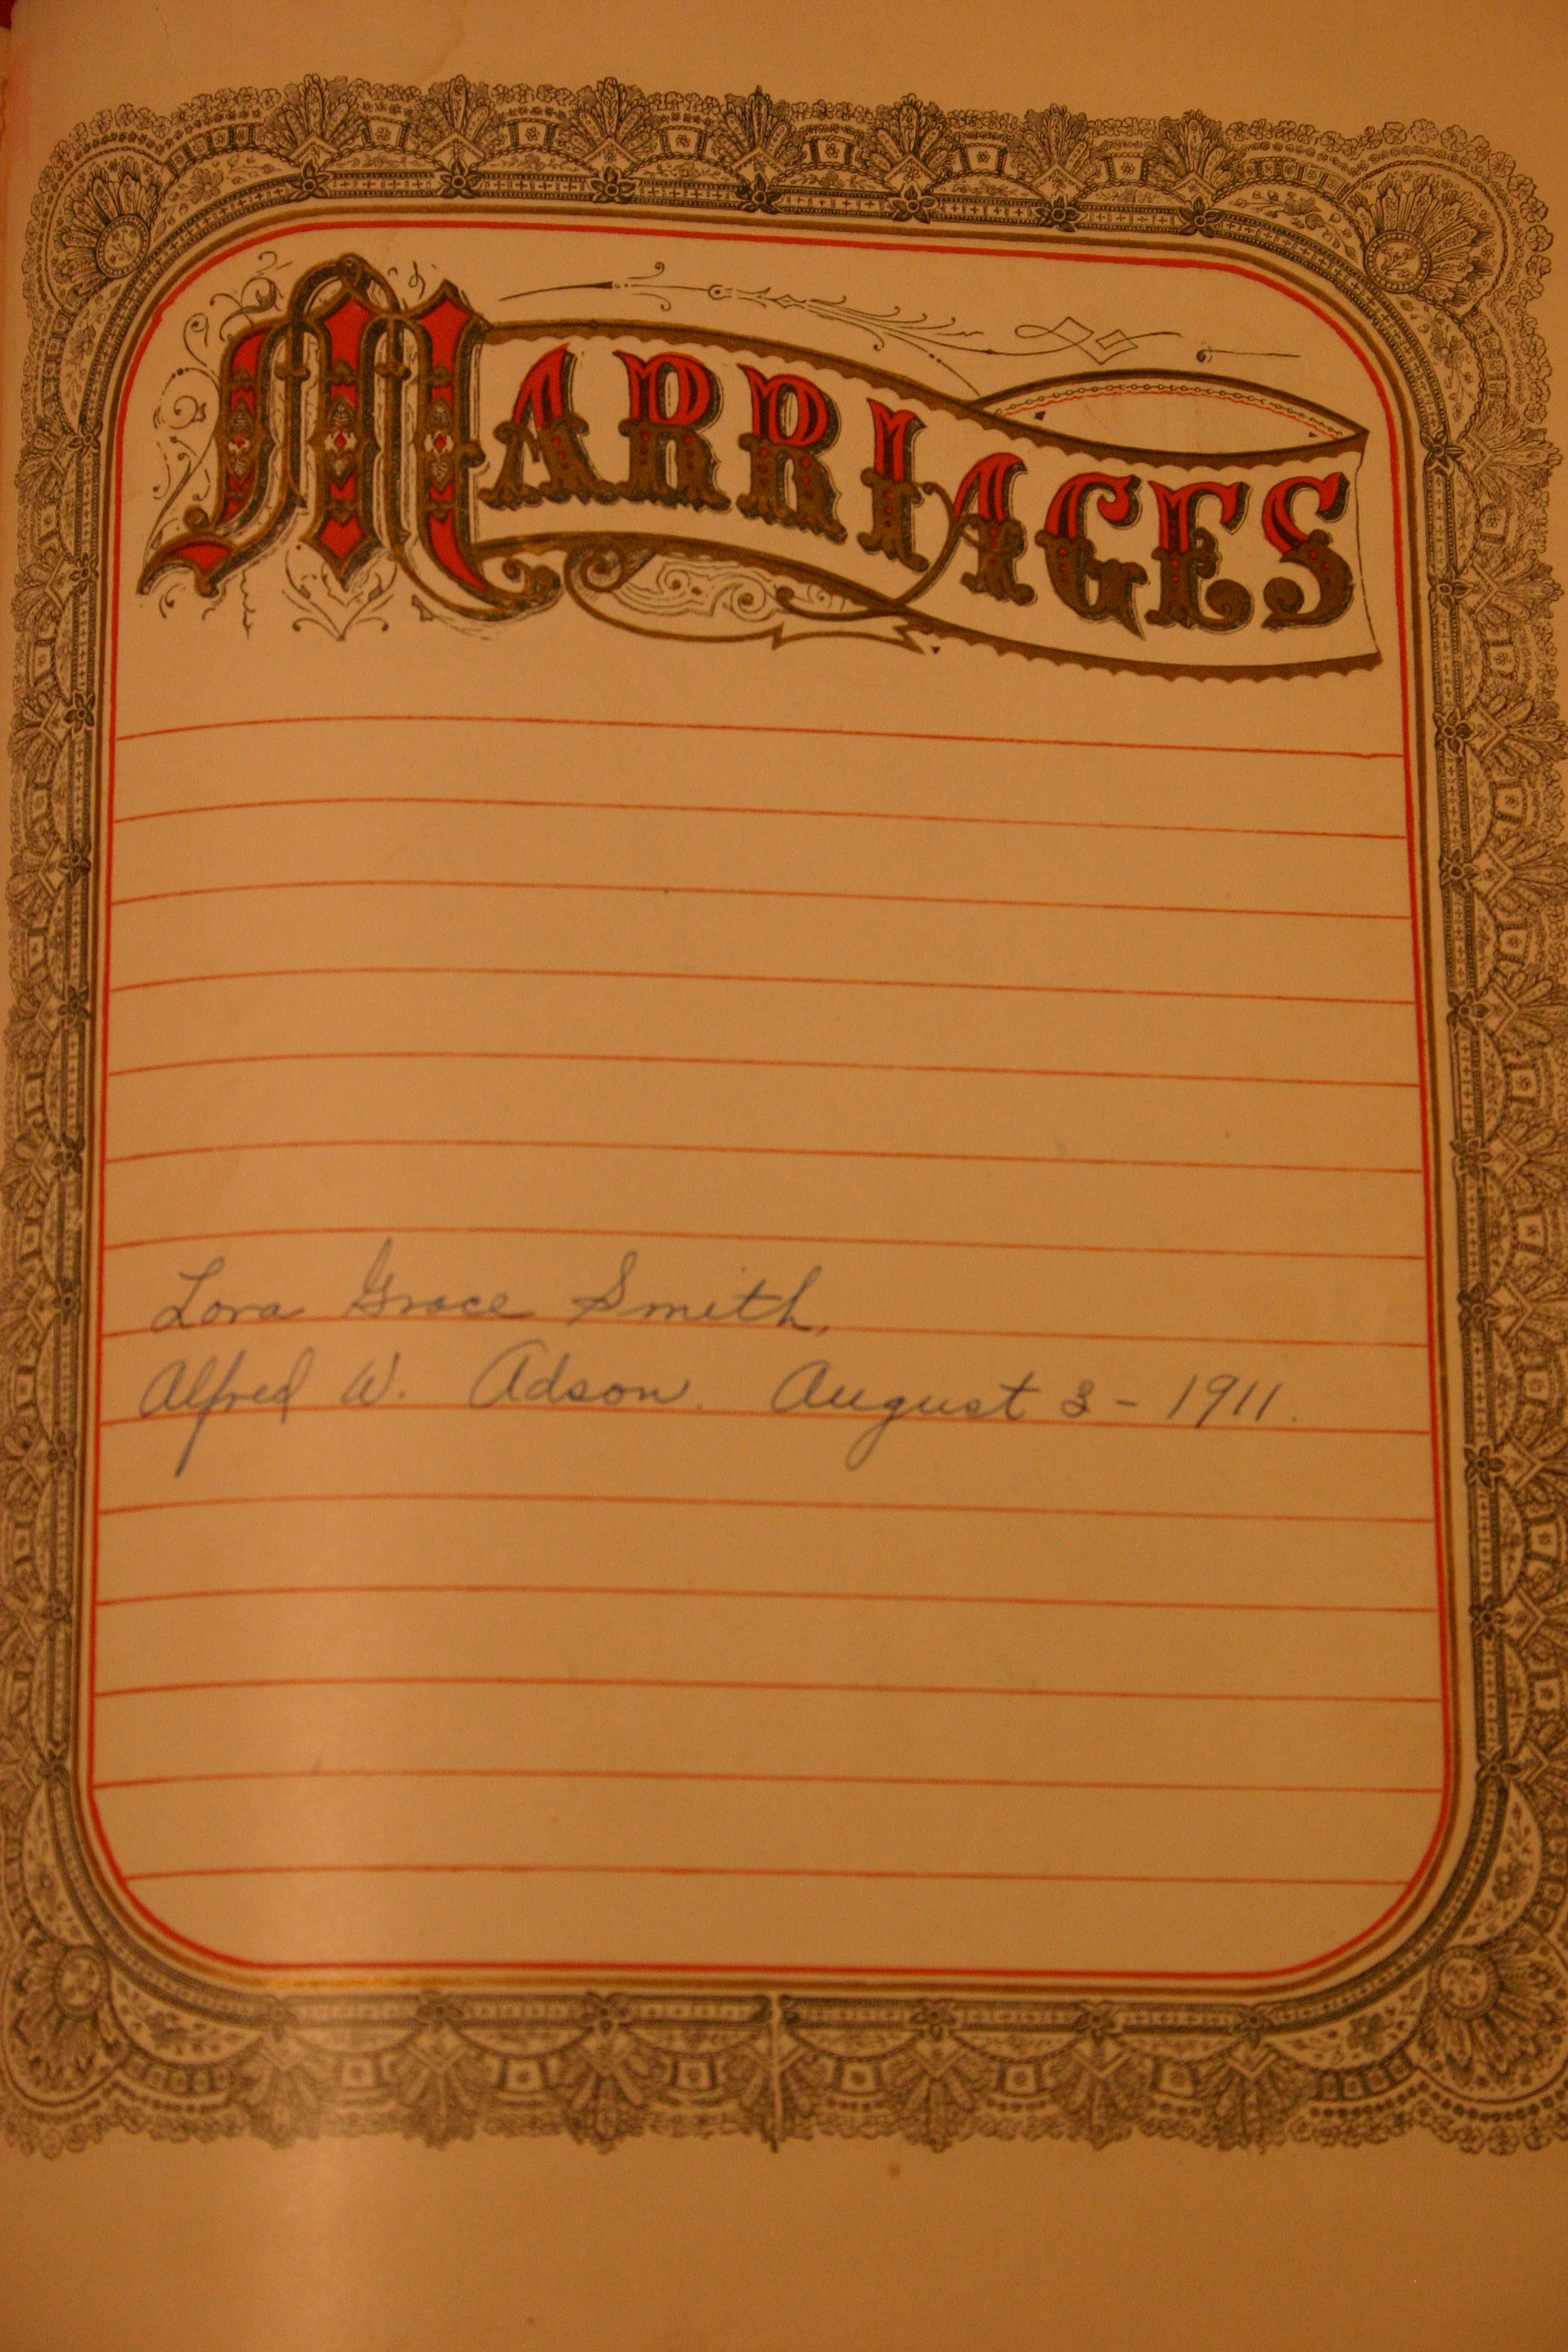 MARRIAGES
Lora Grace Smith,
Alfred W. Adson. August 3 - 1911.